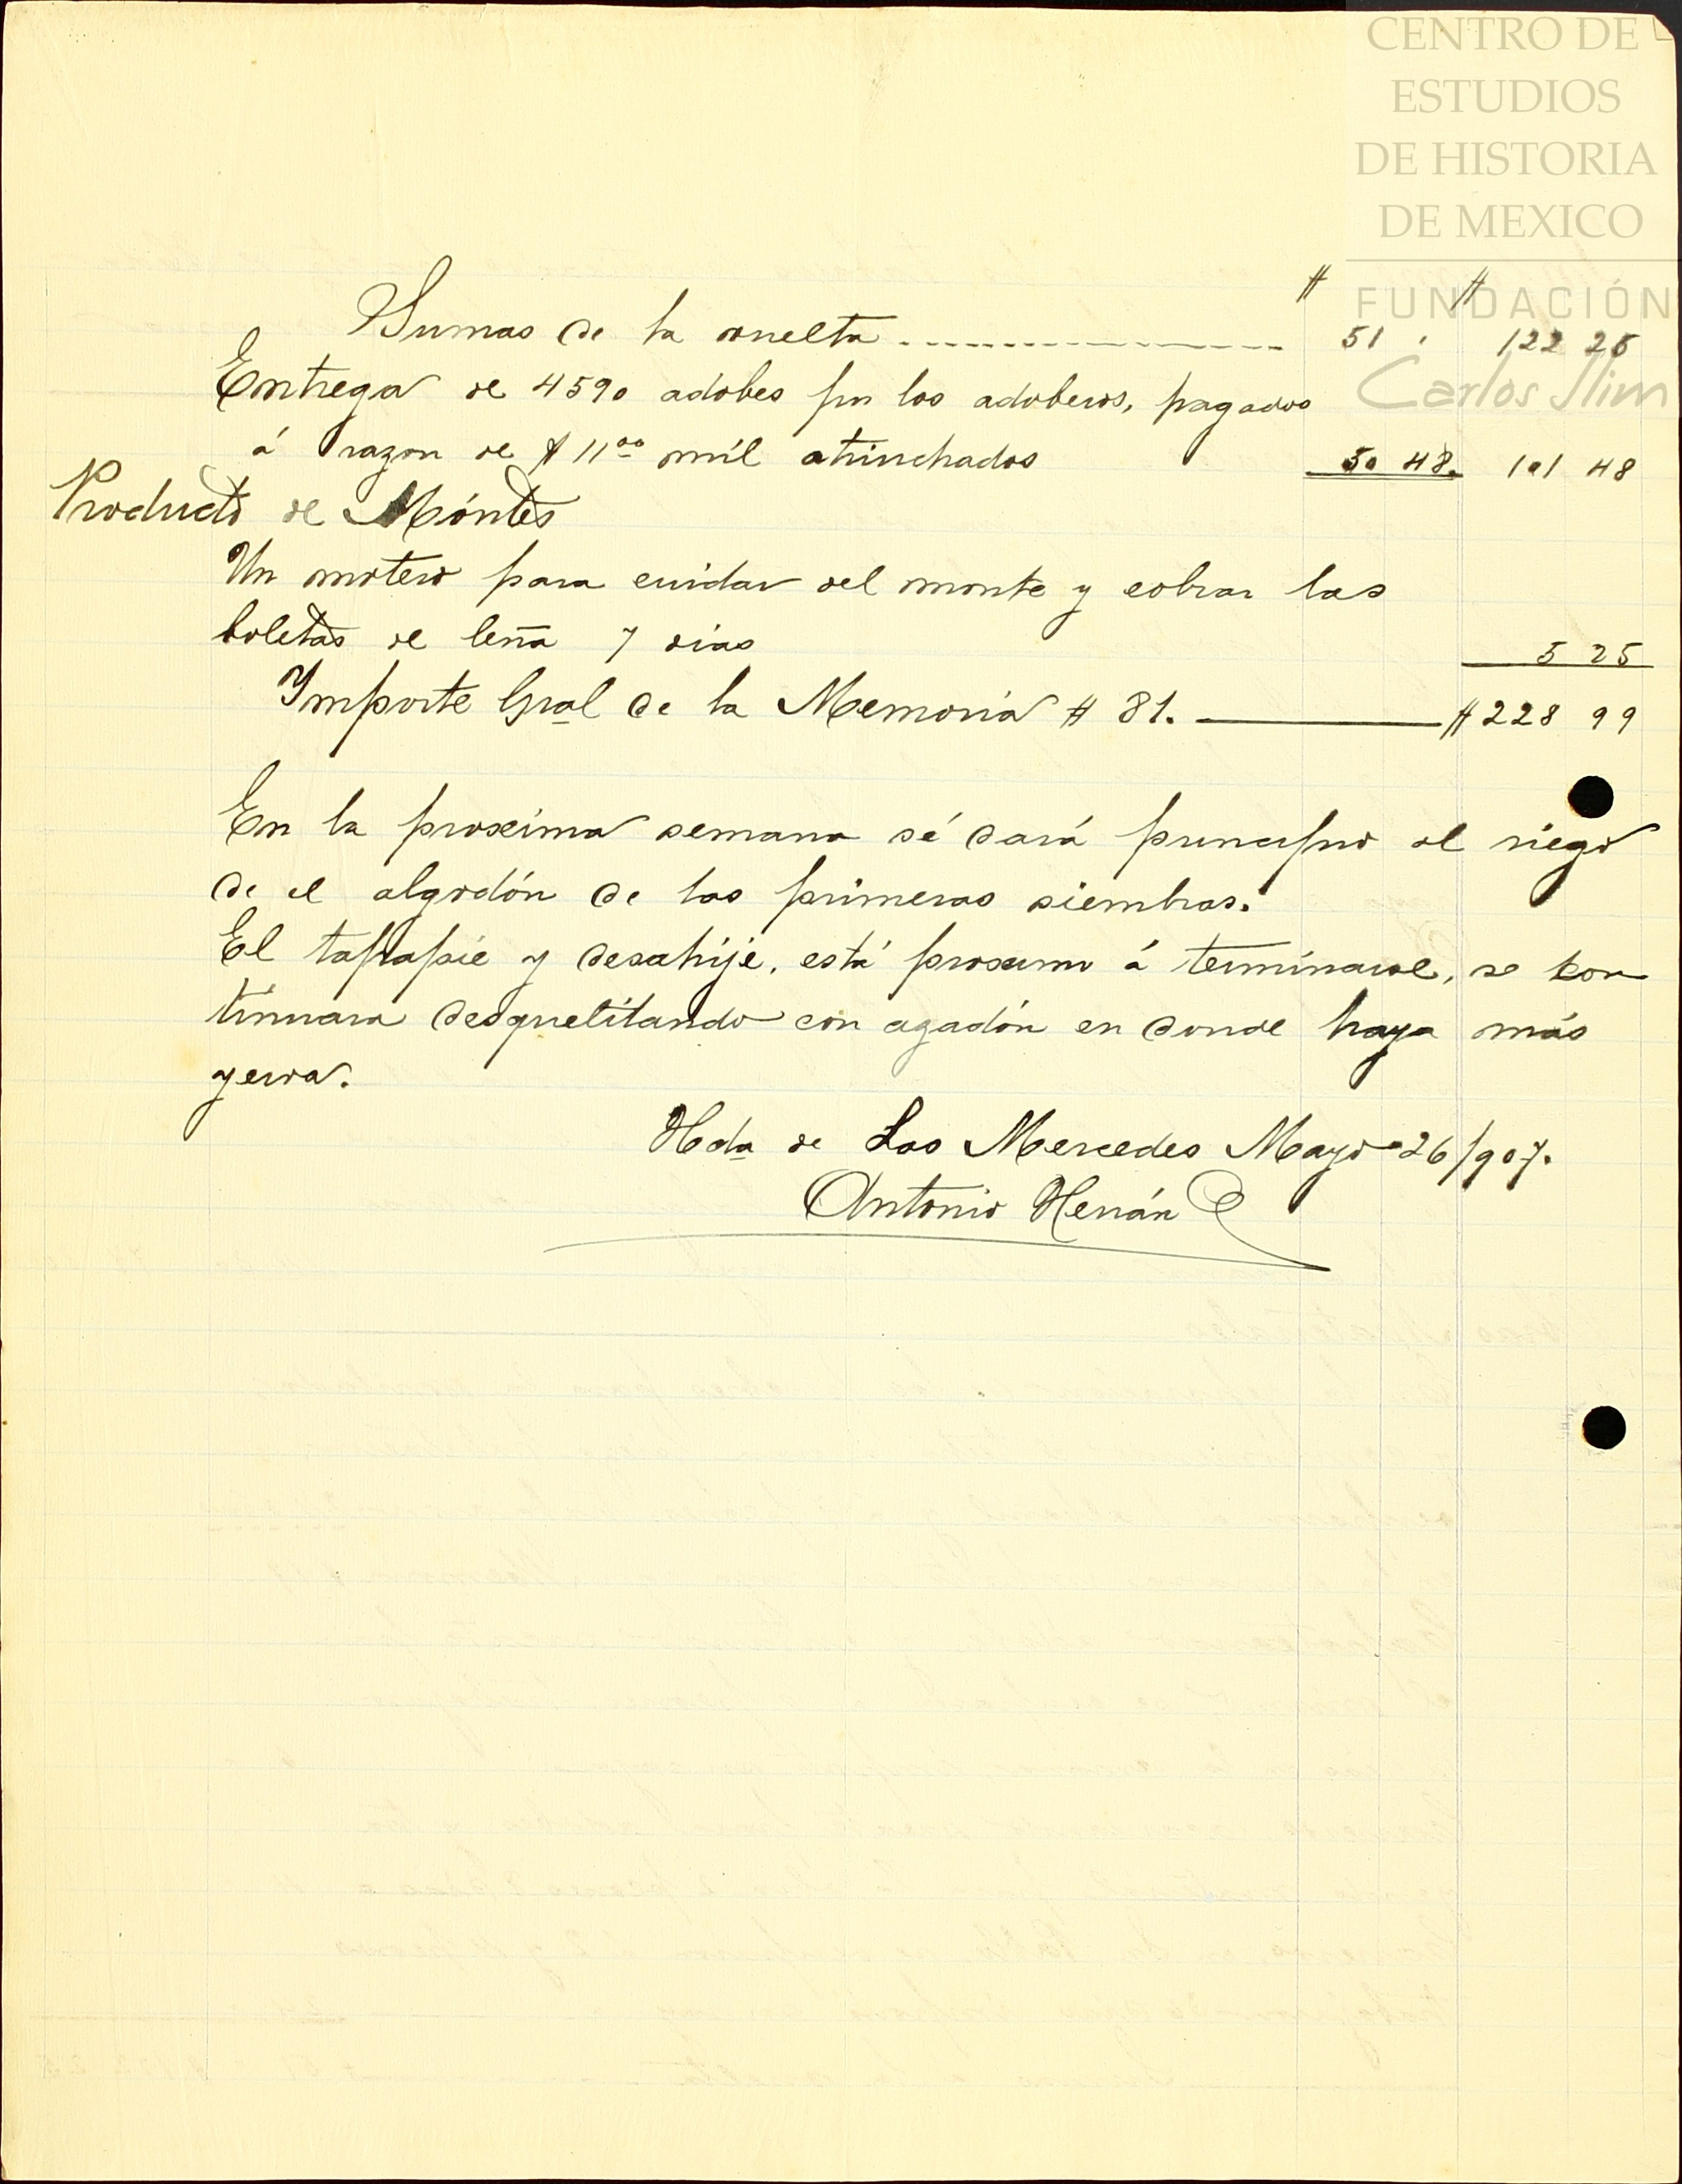 CENTRO DE
ESTUDIOS
DE HISTORIA
DE MEXICO
FUNDACIÓN
Carlos Slim
$ $
Sumas de la vuelta 51 122 26
Entrega de 4590 adobes por los adoberos, pagados
á razon de $ 11 00 mil atrinchados 50 48. 101 48
Producto de Móntes
Un motero para cuidar del monte y cobrar las
boletas de leña 7 dias 5 25
Importe Gral de la Memoria # 81. $ 228 99
En la proxima semana sé dará principio al riego
de el algodón de las primeras siembras.
El tapapie y desahije, está proximo á terminarse, se con
tinuara desquelitando con azadón en donde haya más
yerva.
Hda de Las Mercedes Mayo 26/907.
Antonio Hernán